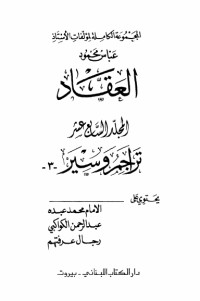 المجموعة الكاملة لمؤلفات الأستاذ
عباس محمود
العقاد
المجلد السابع عشر
تراجم وسير
-٣-
يحتوي على
الامام محمد عبده
عبد الرحمن الكواكبي
رجال عرفتهم
دار الكتاب اللبناني - بيروت